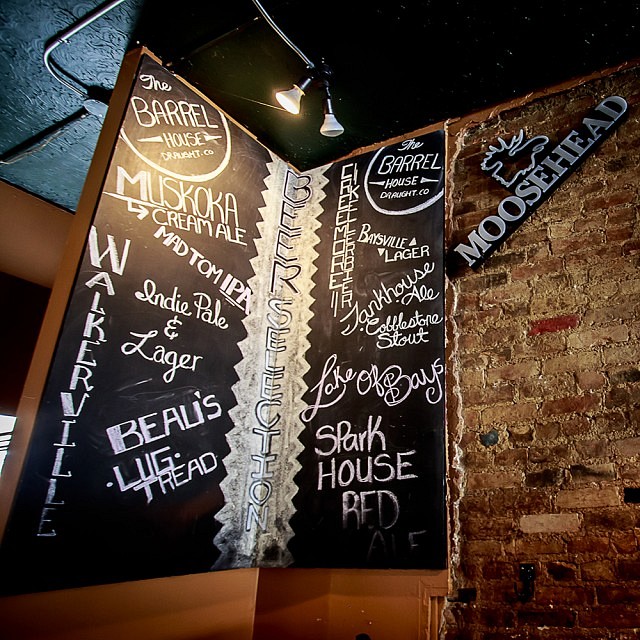 The
BARREL
HOUSE
DRAUGHT.CO
MUSKOKA
CREAM ALE
MAD TOM IPA
WALKERVILLE
Indie Pale
&
Lager
BEAU'S
·LUG·
TREAD
BEER SELECTION
The
BARREL
HOUSE
DRAUGHT.CO
Baysville
LAGER
Tankhouse
Ale
Cobblestone
Stout
Lake Of Bays
SPark
HOUSE
RED
ALE
MOOSEHEAD